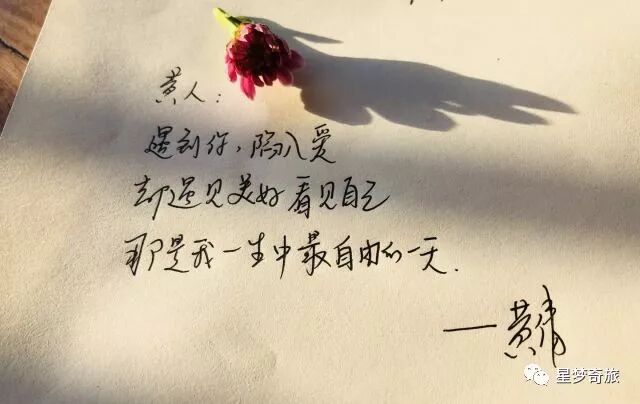 黄人：
遇到你，陷入爱
却遇见美好看见自己
那是我一生中最自由的一天.
——黄伟
星梦奇旅